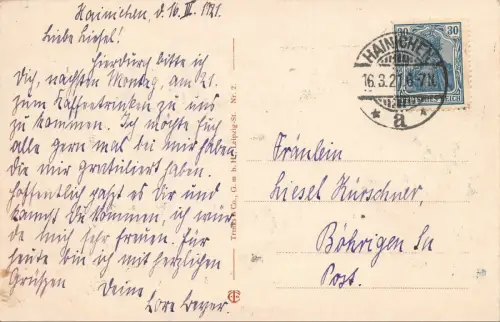 Hainichen, d. 16. III. 1921.
Liebe Liesel!
Hierdurch bitte ich
Dich, nächsten Montag, am 21.
zum Kaffeetrinken zu uns
zu kommen. Ich möchte Euch
alle gern mal bei mir haben
die mir gratuliert haben.
Hoffentlich paßt es Dir und
kannst Du kommen, ich wür-
de mich sehr freuen. Für
heute bin ich mit herzlichen
Grüßen
Deine
Lore Beyer.
Trenkler Co., G. m. b. H., Leipzig-St. Nr. 2.
TC
30
30
HAINICHEN
16.3.21.6-7N.
* a *
REICH
Fräulein
Liesel Kürschner,
Böhrigen Sa
Post.